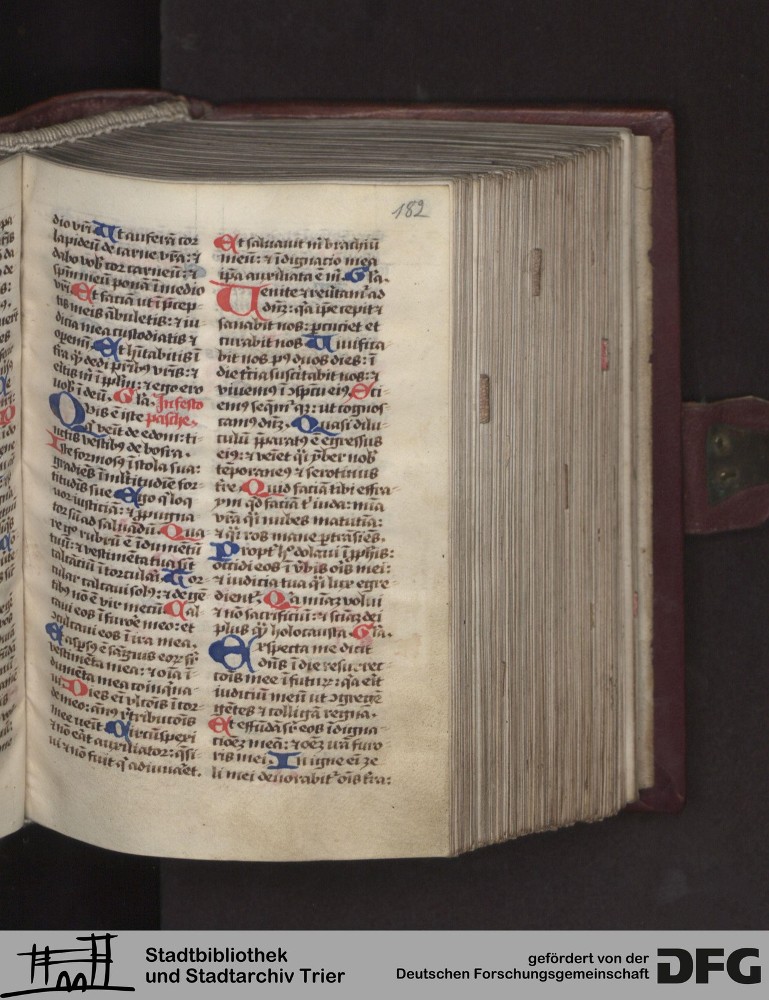 182
dio vr̄i At auferā cor
lapideū de carne vr̄a: ⁊
dabo vob̛ cor carneū: ⁊
sp̄m meū ponā ī medio
vr̄i Et faciā ut ī p̄cep
tis meis ābuletis: ⁊ iu
dicia mea custodiatis ⁊
opem̄ Et hītabitis ī
t̄ra qȝ dedi prib̛ vr̄is: ⁊
eritis m̄ ī pplm̄: ⁊ ego ero
uob̛ ī deū. Gl̄a. In festo
Quis ē iste pasche.
q̄ veīt de edom: ti
nctis vestib̛ de bosra.
Iste formosꝰ ī stola sua:
gradiēs ī multitudīe for
titudīs sue Ego q̄ loq̄
uor iusticiā: ⁊ ꝓpugna
tor sū ad saluādū. Qua
re go rubrū ē īdumētū
tuū: ⁊ vestimēta tua sic̄
calcātiū ī torculari Tor
cular calcaui solꝰ: ⁊ de gē
tib̛ nō ē vir mecū Cal
caui eos ī furore meo: et
ꝯculcaui eos ī ira mea.
Et aspsꝰ ē sāguis eoꝝ sr̄
vestimēta mea: ⁊ oīa ī
dumēta mea coinqua
ui Dies ei vltiōis ī cor
de meo: ānꝰ r̄tributiōis
mee ueīt Circūspexi
⁊ nō erat auxiliator: q̄si
ui ⁊ nō fuit q̄ adiuuaret.
Et saluauit m̄ brachiū
meū: ⁊ īdignatio mea
ip̄a auxiliata ē m̄. Gl̄a.
Venite ⁊ reūtam̄ ad
dn̄ȝ: q̄a ip̄e cepit ⁊
sanabit nos: ꝑcuciet et
curabit nos Viuifica
bit nos pꝰ duos dies: ī
die t̄cia suscitabit nos: ⁊
viuemꝰ ī ꝯspectu eiꝰ Sci
emꝰ seq̄mr̄ qȝ: ut cognos
camꝰ dn̄ȝ. Quasi dilu
culū p̄paratꝰ ē egressus
eiꝰ: ⁊ veīet q̄i ymber nob̛
tēporaneꝰ ⁊ serotinus
t̄re. Quid faciā tibi effra
ym qd̄ faciā t̄ iuda: mīa
vr̄a q̄i nubes matutīa:
⁊ q̄i ros mane ꝑtrāsies.
Propt̄ h̄ dolaui ī ꝓphīs:
occidi eos ī v̄bis oris mei:
⁊ iudicia tua q̄i lux egre
dient̄. Qa m̄iaȝ volui
⁊ nō sacrificiū: ⁊ sciāȝ dei
plus qȝ holocausta. Gl̄a.
Expecta me dicit
dn̄s ī die resurrec
tōis mee ī futurȝ: q̄a eīt
iudiciū meū ut ꝯgregē
gētes ⁊ colligā regna.
Et effūdā sr̄ eos īdigna
cōeȝ meā: ⁊ oēȝ irā furo
ris mei. In igne ei ze
li mei deuorabit̄ oīs t̄ra:
Stadtbibliothek
und Stadtarchiv Trier
gefördert von der
Deutschen Forschungsgemeinschaft
DFG